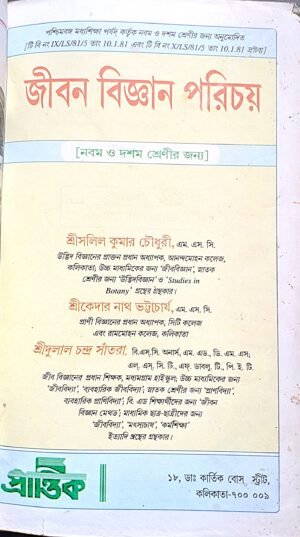 পশ্চিমবঙ্গ মধ্যশিক্ষা পর্ষদ্ কর্তৃক নবম ও দশম শ্রেণীর জন্য অনুমোদিত
[টি বি নং IX/LS/81/5 তাং 10.1.81 এবং টি বি নং X/LS/81/5 তাং 10.1.81 দ্রষ্টব্য]
জীবন বিজ্ঞান পরিচয়
[নবম ও দশম শ্রেণীর জন্য]
শ্রীসলিল কুমার চৌধুরী, এম. এস. সি.
উদ্ভিদ বিজ্ঞানের প্রাক্তন প্রধান অধ্যাপক, আনন্দমোহন কলেজ,
কলিকাতা; উচ্চ মাধ্যমিকের জন্য 'জীববিজ্ঞান', স্নাতক
শ্রেণীর জন্য 'উদ্ভিদবিজ্ঞান' ও 'Studies in
Botany' গ্রন্থের গ্রন্থকার।
শ্রীকেদার নাথ ভট্টাচার্য, এম. এস. সি.
প্রাণী বিজ্ঞানের প্রধান অধ্যাপক, সিটি কলেজ
এবং রামমোহন কলেজ, কলিকাতা
শ্রীদুলাল চন্দ্র সাঁতরা, বি.এস্.সি. অনার্স, এম. এড., ডি. এম. এস;
এল. এস. সি. টি., এফ্. ডাবলু. টি., পি. ই. টি.
জীব বিজ্ঞানের প্রধান শিক্ষক, মধ্যমগ্রাম হাইস্কুল; উচ্চ মাধ্যমিকের জন্য
'জীববিদ্যা', 'ব্যবহারিক জীববিদ্যা'; স্নাতক শ্রেণীর জন্য 'প্রাণবিদ্যা',
ব্যবহারিক প্রাণিবিদ্যা'; বি. এড শিক্ষার্থীদের জন্য 'জীবন
বিজ্ঞান মেথড'; মাধ্যমিক ছাত্র-ছাত্রীদের জন্য
'জীববিদ্যা', 'মৎস্যচাষ', 'কর্মশিক্ষা'
ইত্যাদি গ্রন্থের গ্রন্থকার।
প্রান্তিক
১৮, ডাঃ কার্তিক বোস্ স্ট্রীট,
কলিকাতা-৭০০ ০০৯